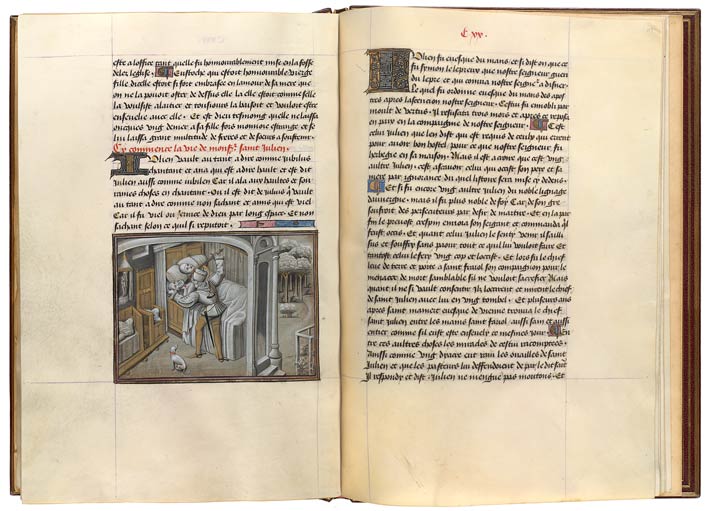 estre a loffice tant quelle fu honnourablement mise en la fosse
de leglise. Eustoche qui estoit honnourable vierge
fille dicelle estoit si fort embrasee en lamour de sa mere que
on ne la pouoit oster de dessus elle la elle estoit comme selle
la voulsist alaitier et tousiours la baisoit et vouloit estre
enseuelie auec elle. Et est dieu tesmoing quelle ne laissa
oncques vng denier a sa fille fors monnoie estrange et si
lui laissa grant multitude de freres et de soeurs a soustenir
Cy commence la vie de monsr. saint Julien.
Julien vault autant a dire comme iubilus
chantant et ana qui est a dire hault et est dit
iulien aussi comme iubilen Car il ala aux haultes et sou
raines choses en chantant. Ou il est dit de iulius qui vault
autant a dire comme non sachant et amis qui est viel
Car il fu viel ou seruice de dieu par long espace. Et non
sachant selon ce quil se reputoit.
C xx.
Julien fu euesque du mans et si dist on que ce
fu symon le lepreux que nostre seigneur gueri
du lepre et qui conuia nostre seignr. a disner.
Le quel fu ordonne euesque du mans des apos
tres apres lascension nostre seigneur. Cestui fu ennobli par
moult de vertus. Il resuscita trois mors et apres ce reposa
en paix en la compaignie de nostre seigneur. Cest
cellui iulien que len dist qui est requis de ceulx qui errent
pour auoir bon hostel. pour ce que nostre seigneur fu
herbegie en sa maison. Mais il est a croire que cest vng
aultre iulien. cest assauoir cellui qui occist son pere et sa
mere par ignorance de quel listoire sera mise cy dedens.
Et si fu encore vng autre iulien du noble lignage
dauuergne. mais il fu plus noble de foy. Car de son gre
souffroit des persecuteurs par desir de martire. Et en la par
fin le preuost crespin enuoia son sergant et commanda quil
feust occis. Et quant cellui Julien le senty venir il sailli
sus et souffry sans paour tout ce quil voulut faire Et
tantost cellui le fery vng cop et locist. Et lors fu le chief
leue de terre et porte a saint fariol son compaignon pour le
menacer de mort samblable sil ne vouloit sacrefier. Mais
quant il ne si vault consentir ilz locirrent et mirent le chief
de saint iulien auec lui en vng tombel. Et plusieurs ans
apres saint mamert euesque de vienne trouua le chief
saint Julien entre les mains saint fariol. aussi sain et aussi
entier comme sil eust este enseueli ce mesmes iour. Entre
ces aultres choses les miracles de cestui racomptees.
Aussi comme vng dyacre eut raui les ouailles de saint
Julien et que les pasteurs lui deffendoient de par le dit saint
Il respondy et dist. Julien ne mengue pas moutons. Et